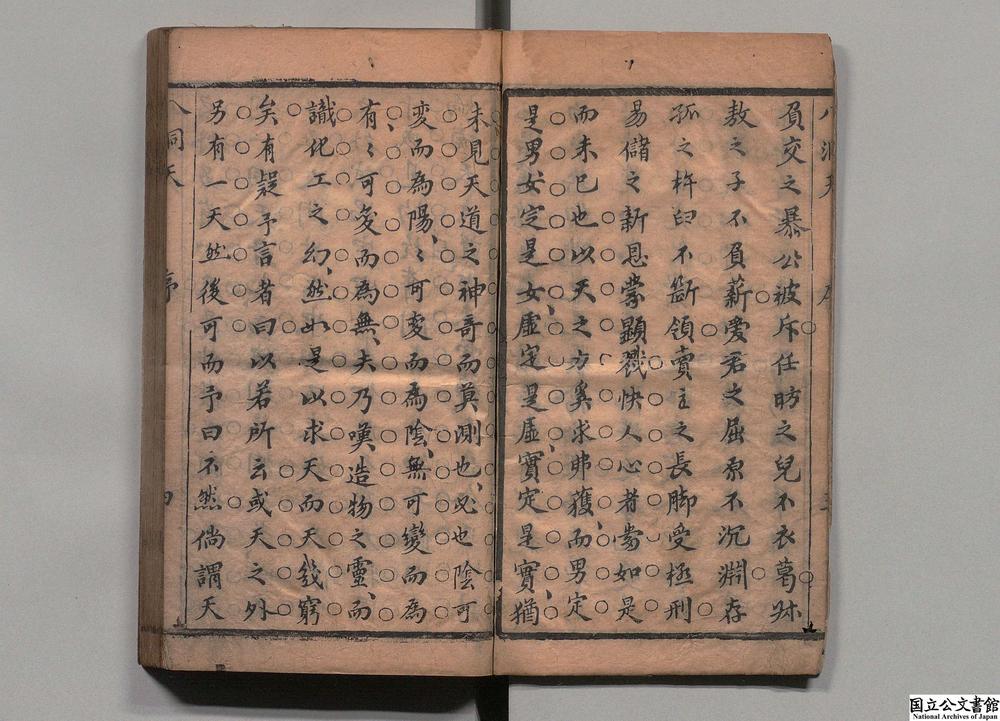 負交之暴公被斥任昉之兒不衣葛
敖之子不負薪愛君之屈原不沉淵存
孤之杵臼不斷領賣主之長脚受極刑
易儲之新恩蒙顯戮快人心者嘗如是
而未已也以天之方奚求弗獲而男定
是男女定是女虛定是虛實定是實猶
未見天道之神奇而莫測也必也陰可
変而為陽〻可変而為陰無可變而為
有〻可変而為無夫乃嘆造物之靈而
識化工之幻然如是以求天而天幾窮
矣有疑予言者曰以若所云或天之外
另有一天然後可而予曰不然倘謂天
八洞天
序
四
国立公文書館
National Archives of Japan